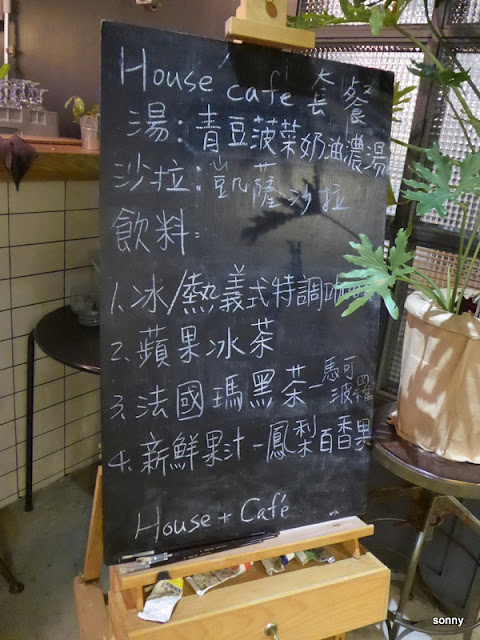 House cafe 套餐
湯：青豆菠菜奶油濃湯
沙拉：凱薩沙拉
飲料：
1. 冰/熱義式特調咖
2. 蘋果冰茶
3. 法國瑪黑茶－馬可波羅
4. 新鮮果汁－鳳梨百香果
House + Café
sonny